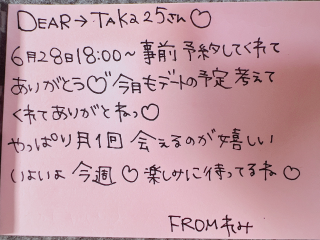 DEAR→TAKA25さん♡
6月28日18:00~事前予約してくれて
ありがとう♡今月もデートの予定考えて
くれてありがとねっ♡
やっぱり月1回 会えるのが嬉しい
いよいよ今週♡楽しみに待ってるね♡
FROMれみ